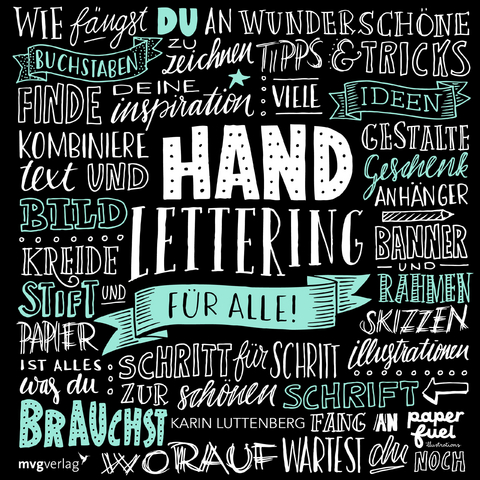 WIE fängst DU AN WUNDERSCHÖNE
BUCHSTABEN zu zeichnen TIPPS & TRICKS
FINDE DEINE inspiration VIELE IDEEN
KOMBINIERE text UND BILD
HAND LETTERING
FÜR ALLE!
GESTALTE Geschenk ANHÄNGER
BANNER UND RAHMEN
KREIDE STIFT UND PAPIER
SKIZZEN illustrationen
IST ALLES was du BRAUCHST
SCHRITT für SCHRITT
ZUR schönen SCHRIFT
KARIN LUTTENBERG
FANG AN
paper fuel illustrations
mvgverlag
WORAUF WARTEST du NOCH